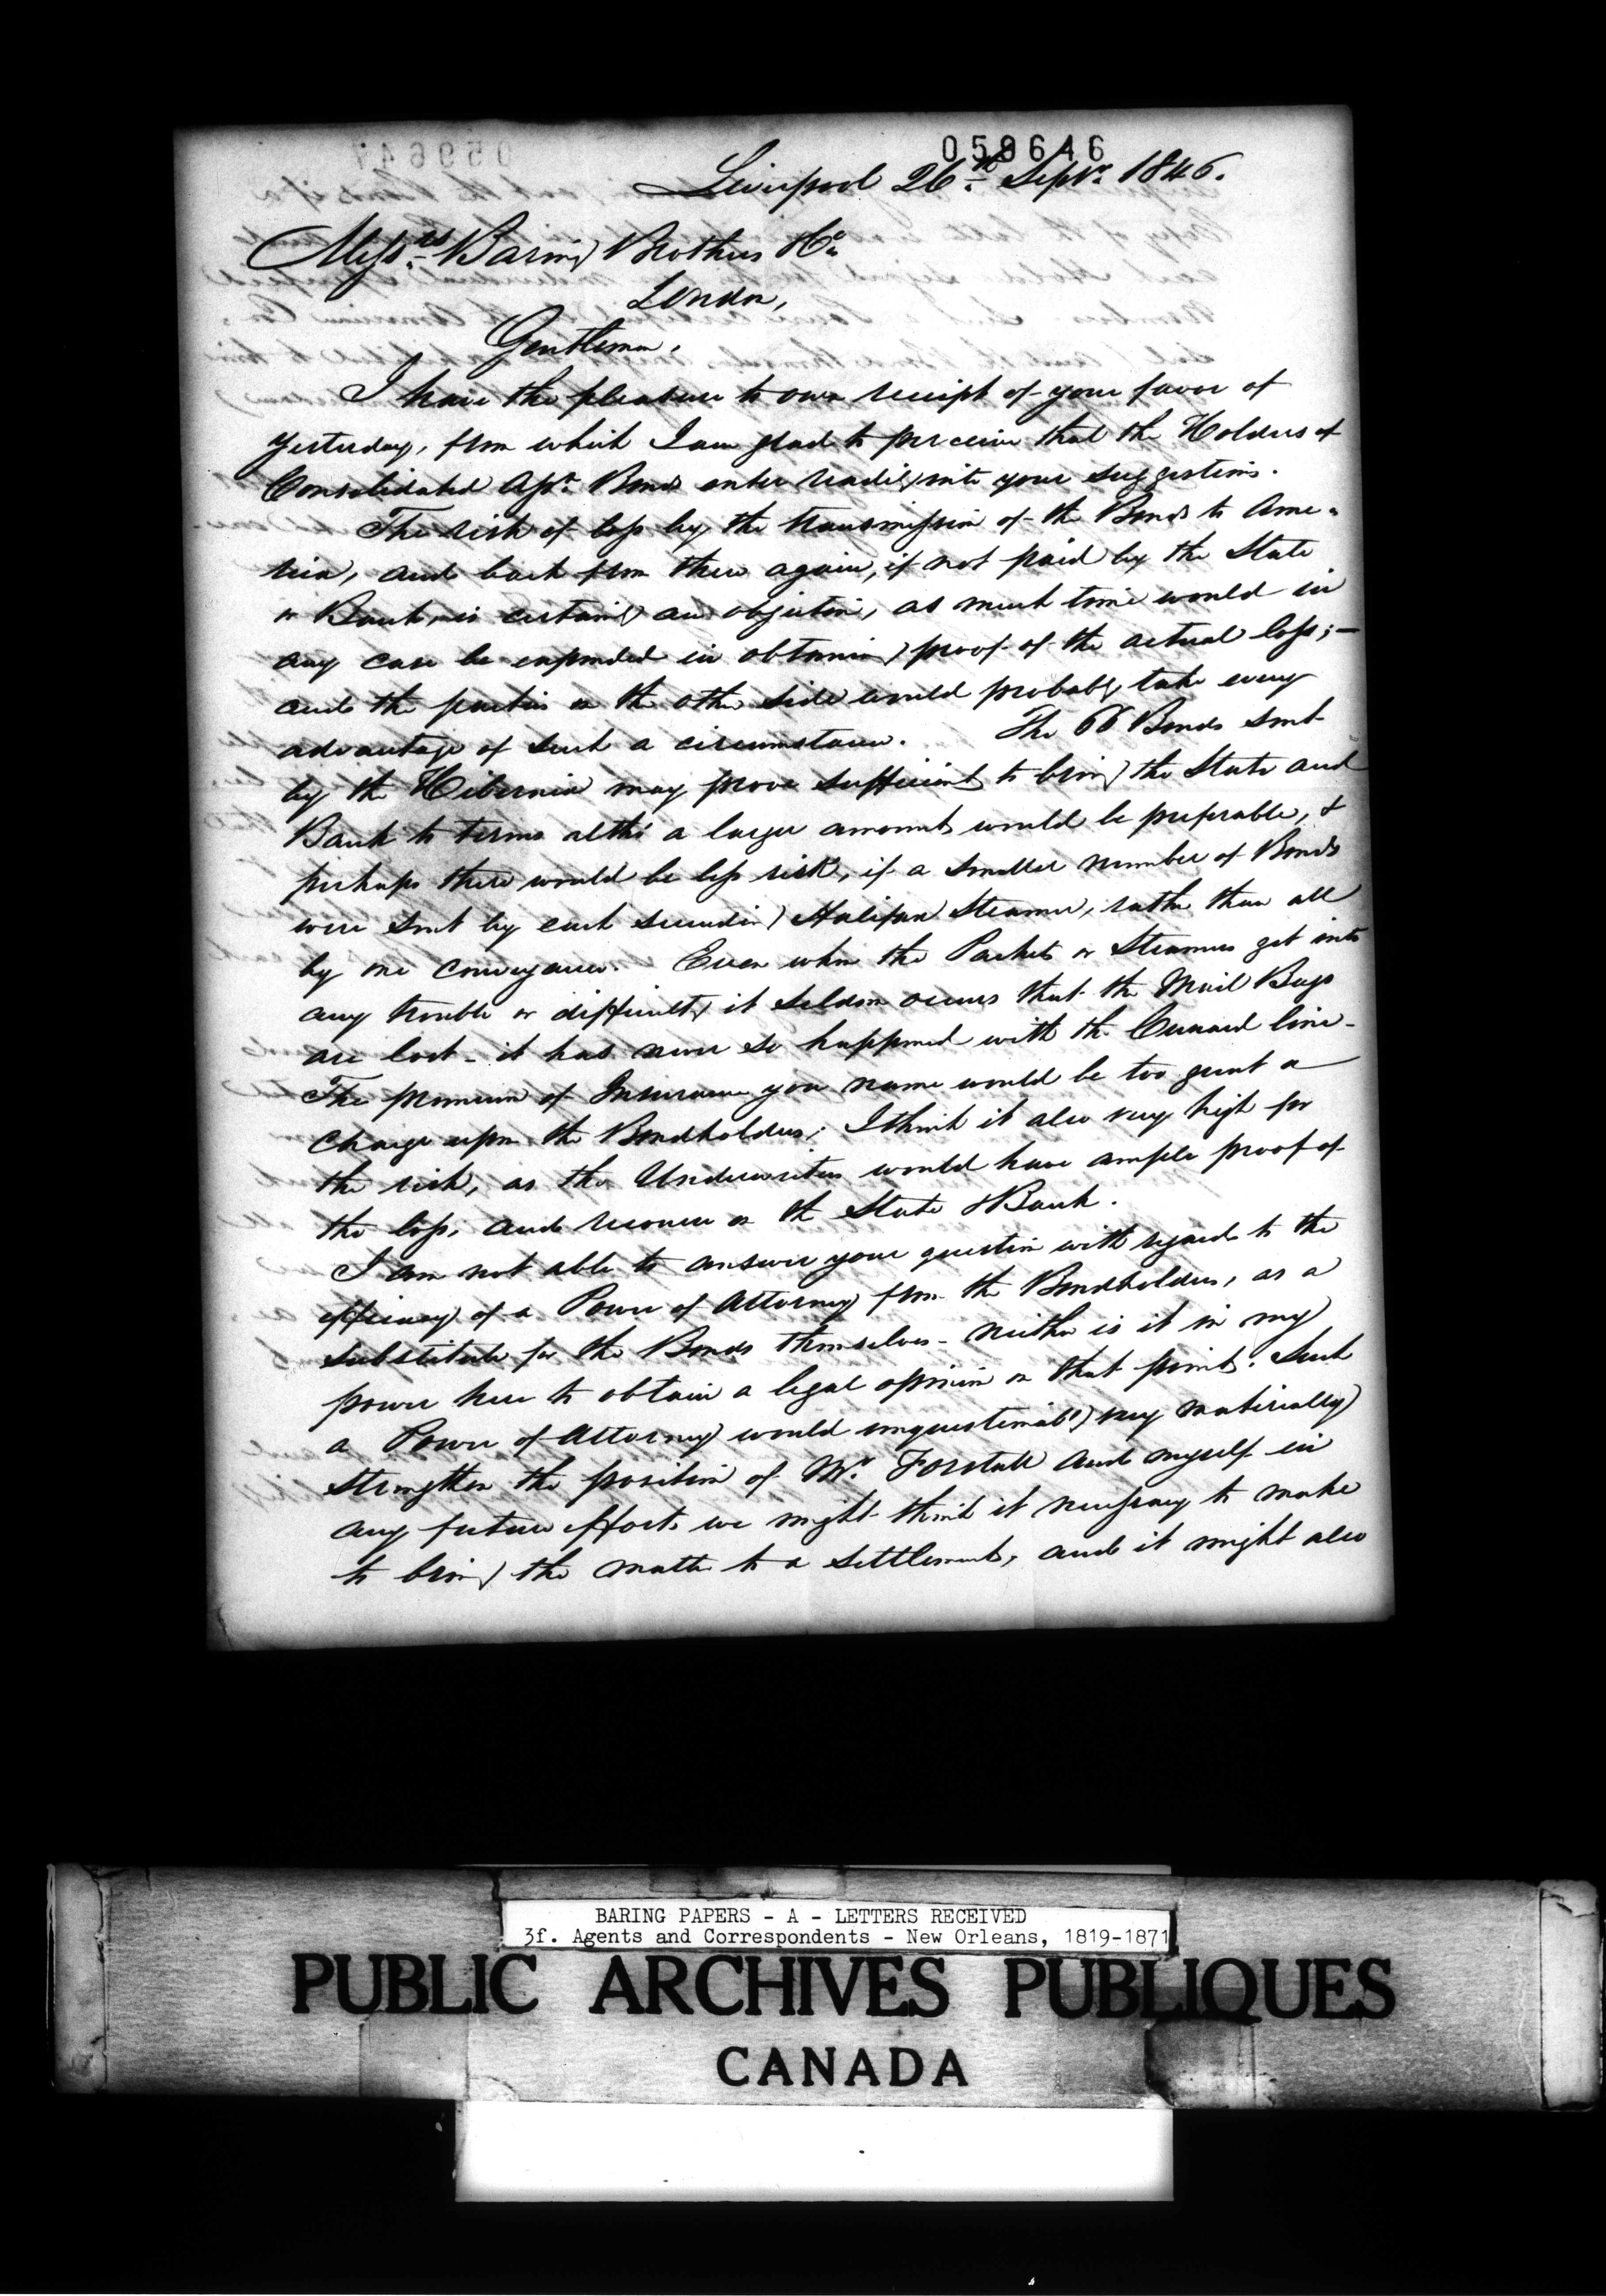 059646
Liverpool 26th Sepr. 1846.
Messrs Baring Brothers & Co
London,
Gentlemen,
I have the pleasure to own receipt of your favor of
yesterday, from which I am glad to perceive that the Holders of
Consolidated Assn. Bonds enter readily into your suggestions.
The risk of loss by the transmission of the Bonds to Ame-
rica, and back from there again, if not paid by the State
or Bank, is certainly an objection, as much time would in
any case be expended in obtaining proof of the actual loss;—
and the parties on the other side would probably take every
advantage of such a circumstance. The 66 Bonds sent
by the Hibernia may prove sufficient to bring the State and
Bank to terms altho' a larger amount would be preferable, &
perhaps there would be less risk, if a smaller number of Bonds
were sent by each succeeding Halifax Steamer, rather than all
by one conveyance. Even when the Packets or Steamers get into
any trouble or difficulty it seldom occurs that the Mail Bags
are lost - it has never so happened with the Cunard line -
The premium of Insurance you name would be too great a
charge upon the Bondholders; I think it also very high for
the risk, as the Underwriters would have ample proof of
the loss, and recourse on the State & Bank.
I am not able to answer your question with regard to the
efficacy of a Power of Attorney from the Bondholders, as a
substitute for the Bonds themselves - neither is it in my
power here to obtain a legal opinion on that point. Such
a Power of Attorney would unquestionably very materially
strengthen the position of Mr. Forstall and myself in
any future efforts we might think it necessary to make
to bring the matter to a settlement, and it might also
BARING PAPERS - A - LETTERS RECEIVED
3f. Agents and Correspondents - New Orleans, 1819-1871
PUBLIC ARCHIVES PUBLIQUES
CANADA